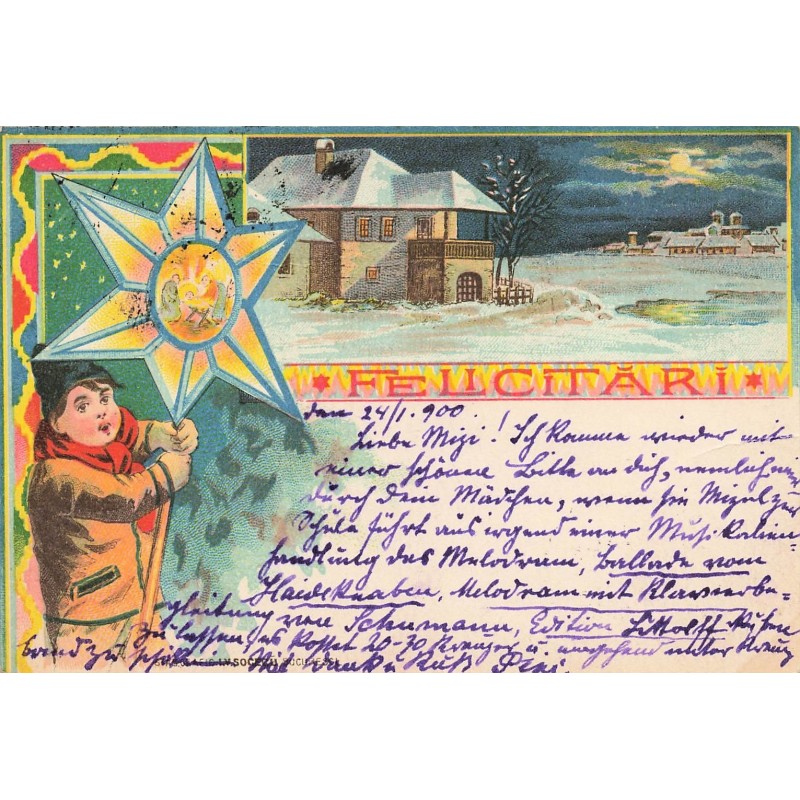 * FELICITĂRI *
den 24/1. 900.
Liebe Mizi! Ich komme wieder mit
einer schönen Bitte an dich, nemlich mir
durch dem Mädchen, wenn sie Mizul zur
Schule führt aus irgend einer Musikalien-
handlung das Melodram, Ballade vom
Haideknaben, Melodram mit Klavierbe-
gleitung von Schumann, Edition Littolff
zu lassen es kostet 20-30 Kreuzer u. umgehend unter Kreuz
band zu
Dank u Kuß
I.V. SOCECŬ